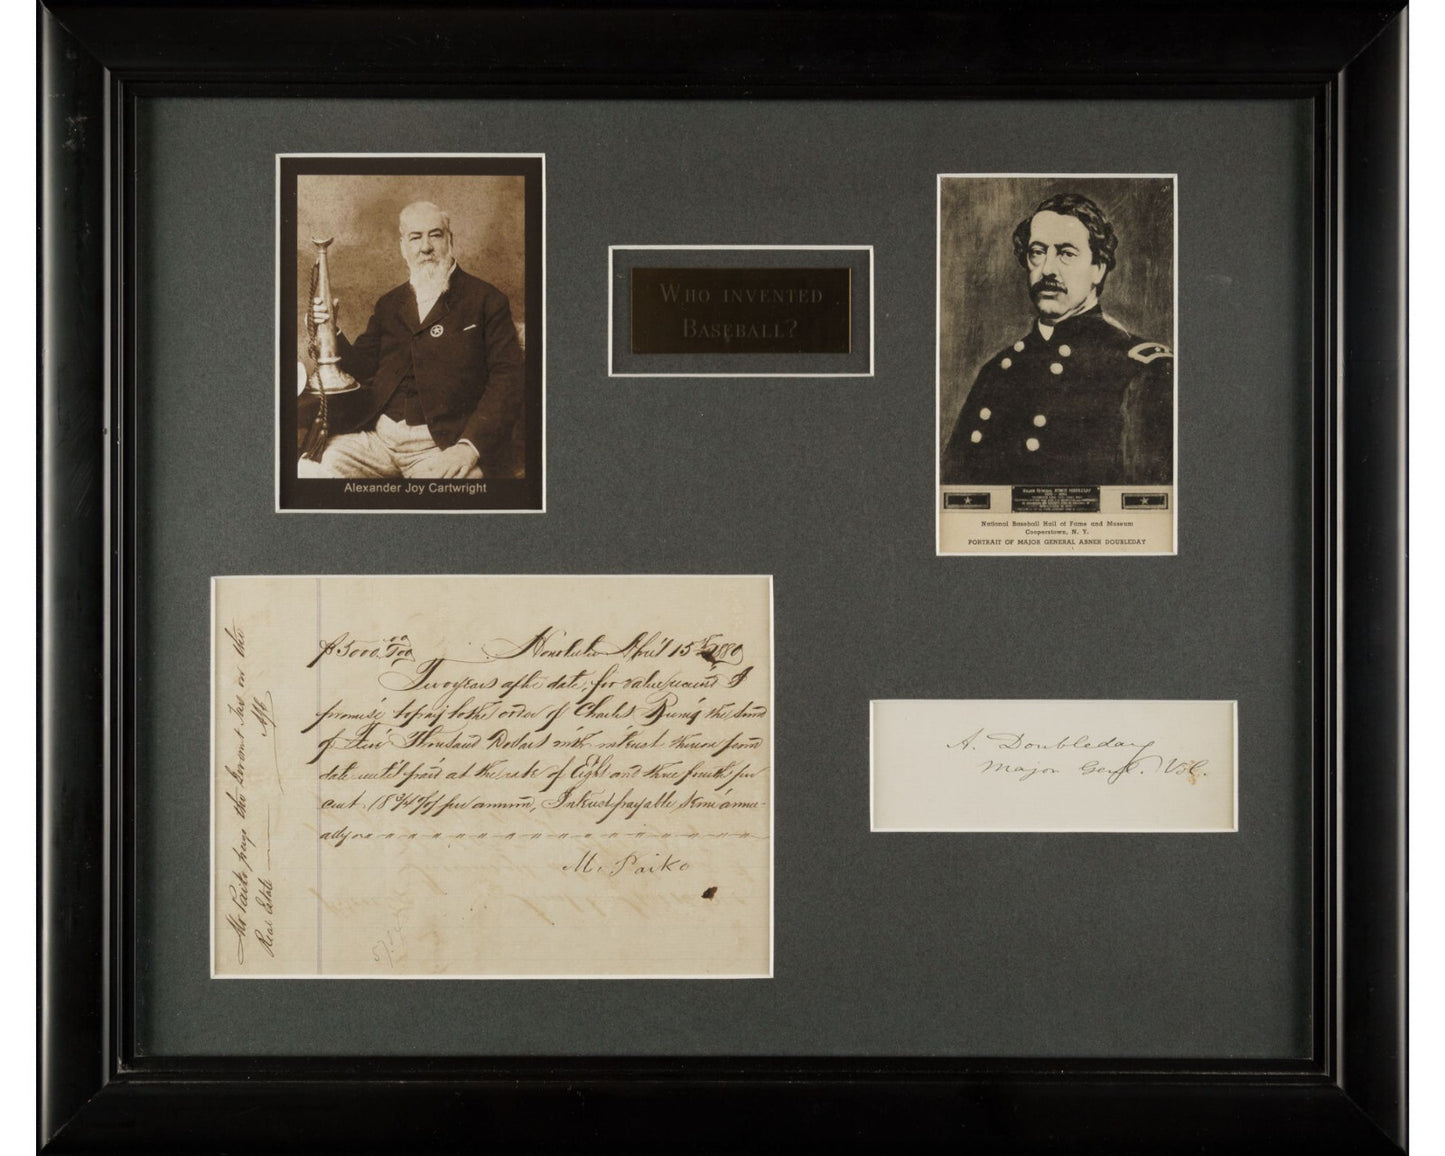 Alexander Joy Cartwright
WHO INVENTED
BASEBALL?
MAJOR GENERAL ABNER DOUBLEDAY
National Baseball Hall of Fame and Museum
Cooperstown, N. Y.
PORTRAIT OF MAJOR GENERAL ABNER DOUBLEDAY
$5000 00/100 Honolulu April 15th 1880
Two years after date, for value I
promise to pay to the order of Charles the Sum
of Five Thousand Dollars with interest thereon from
date until paid at the rate of Eight and three fourth per
cent. 8 3/4 % per annum, Interest payable Semi annu-
ally
M. Paiko
Mr Paiko pays the Government Tax on the
Real Estate
A. Doubleday
Major Genl. Vol.